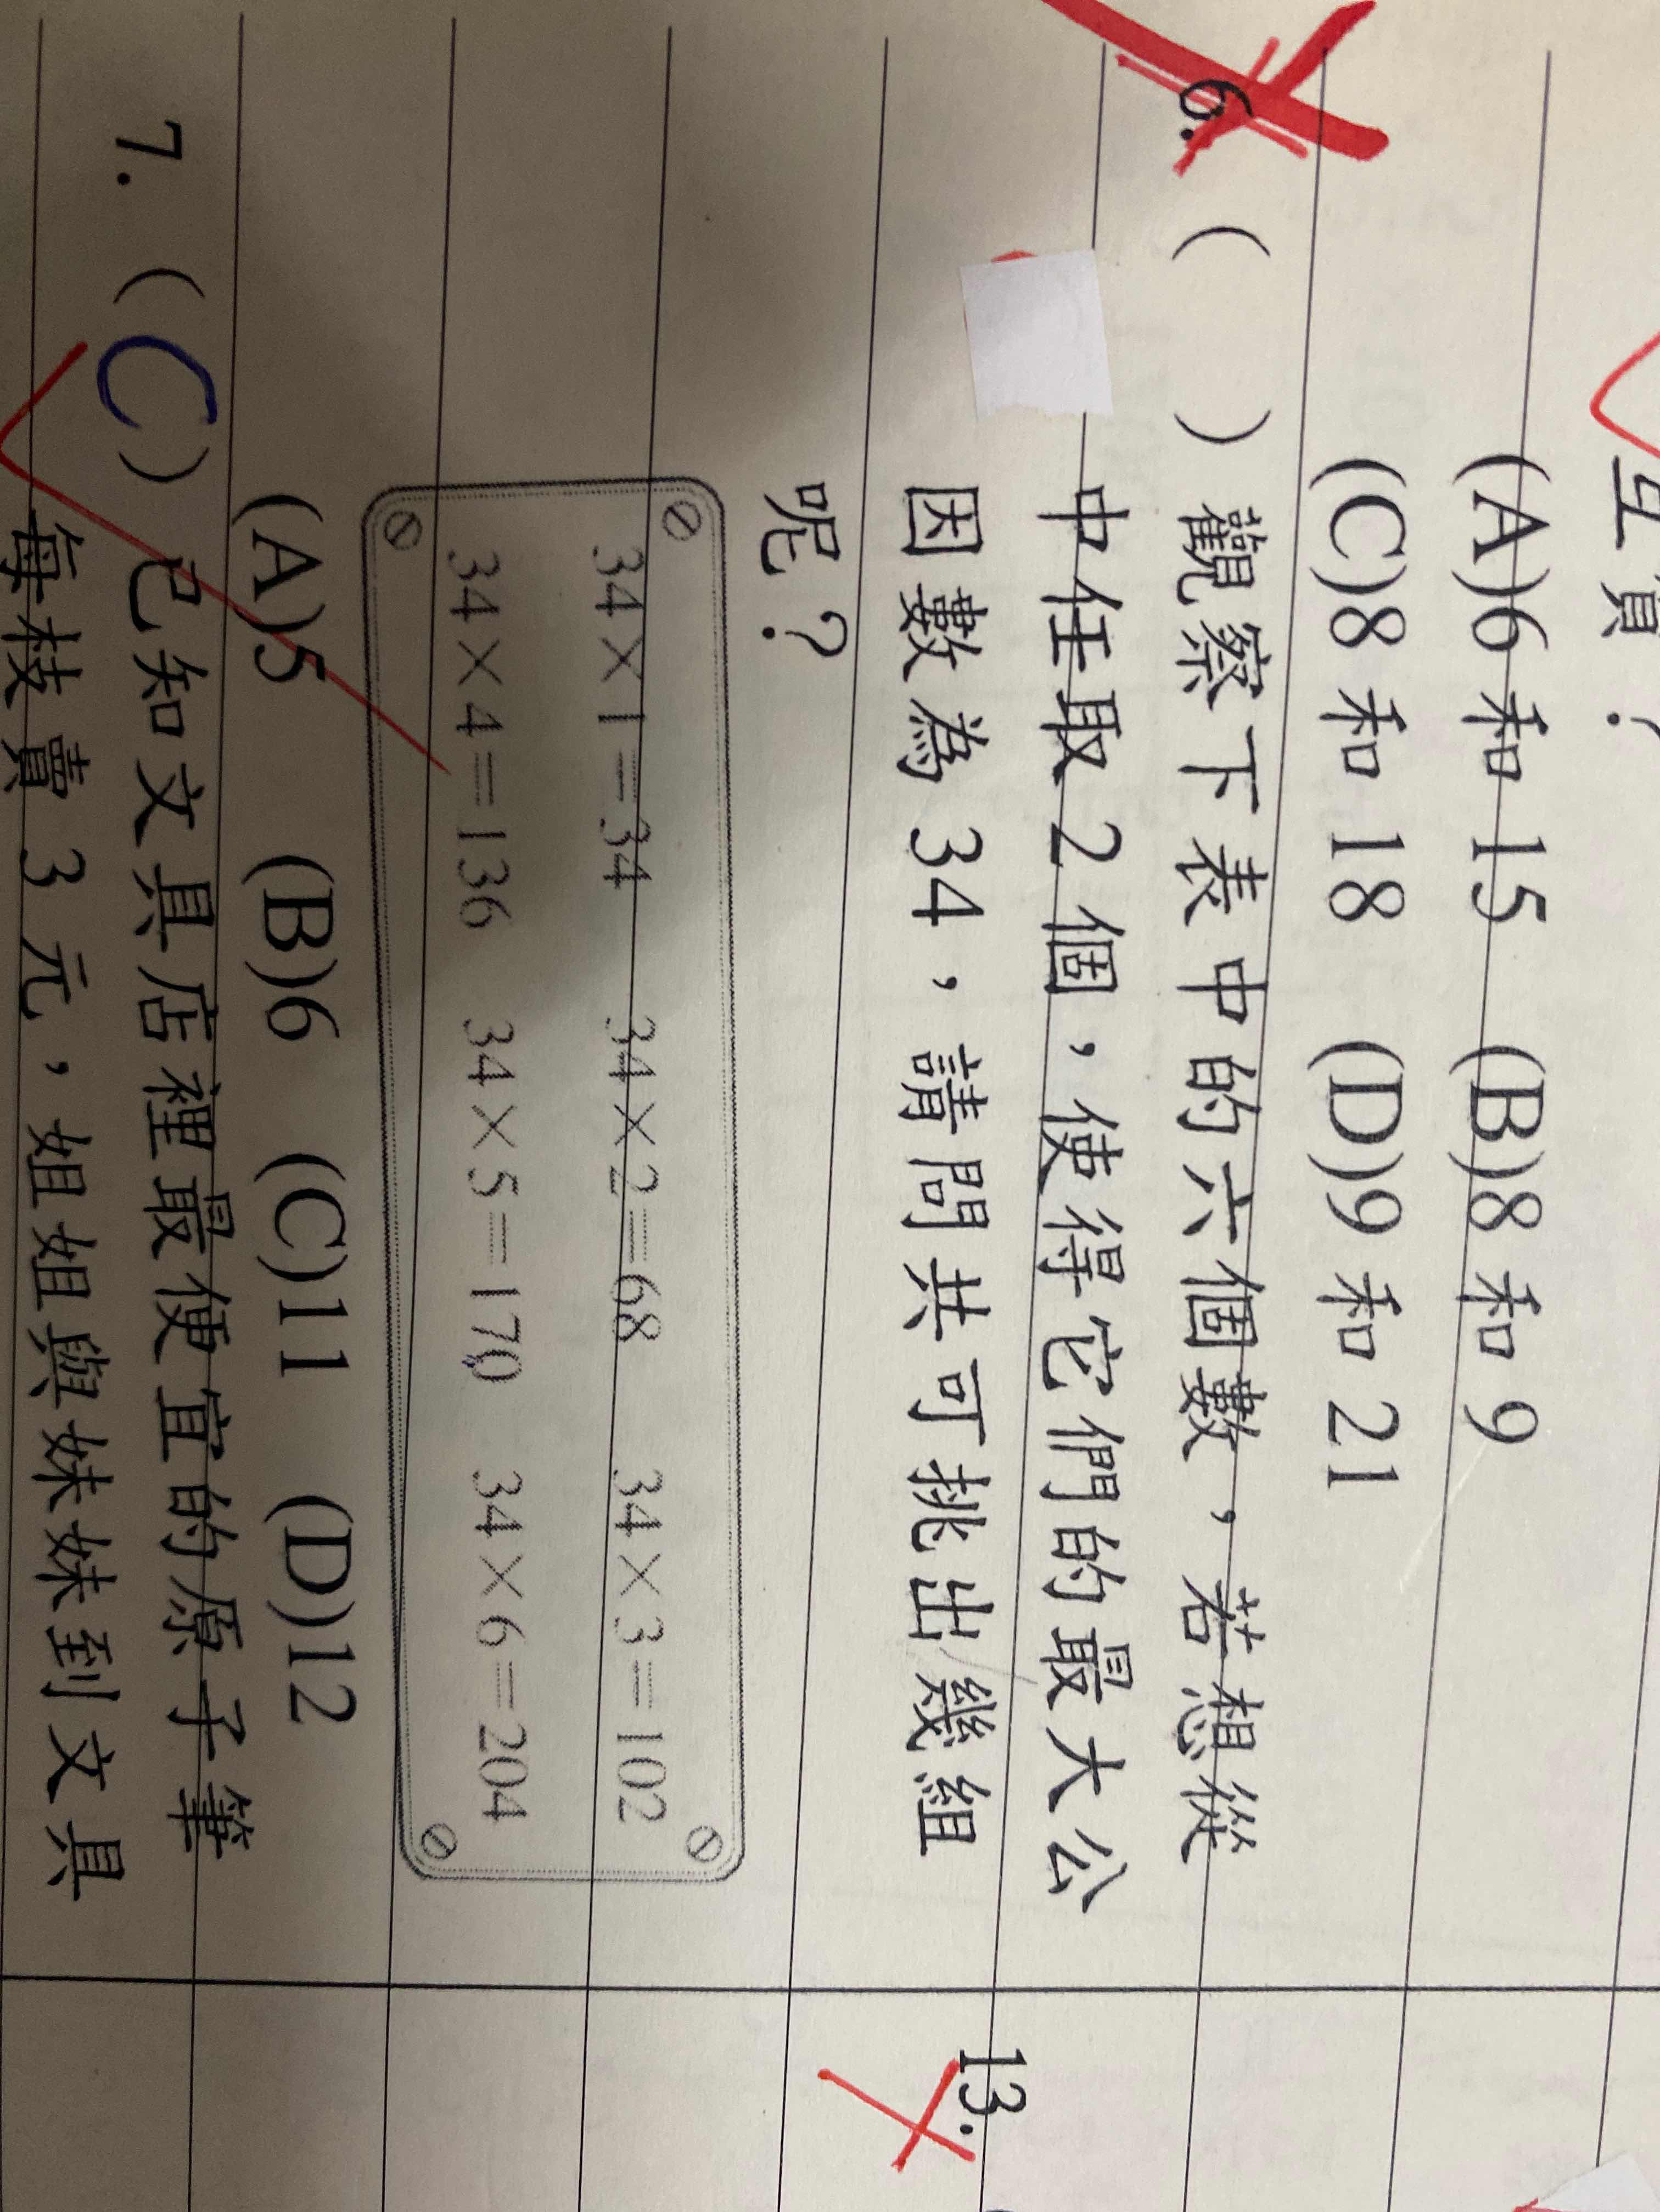 (A)6 和 15 (B)8 和 9
(C)8 和 18 (D)9 和 21
6. ( ) 觀察下表中的六個數，若想從
中任取 2 個，使得它們的最大公
因數為 34，請問共可挑出幾組
呢？
34×1=34 34×2=68 34×3=102
34×4=136 34×5=170 34×6=204
(A)5 (B)6 (C)11 (D)12
7. (C) 已知文具店裡最便宜的原子筆
每枝賣 3 元，姐姐與妹妹到文具
13.